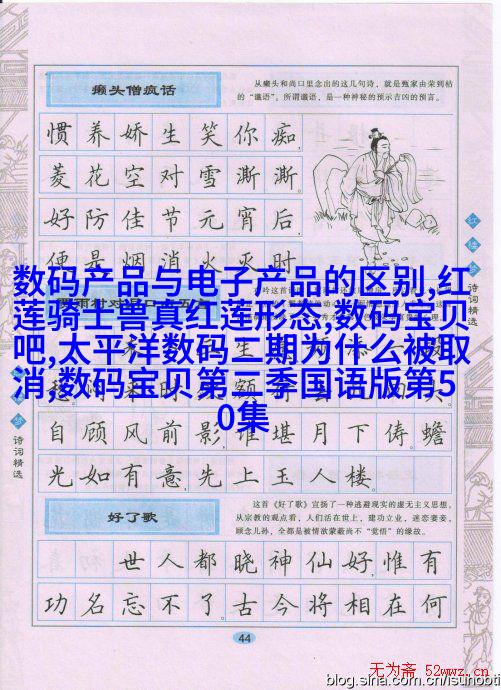 癞头僧疯话
从癞头和尚口里念出的这几句诗，就是甄家由荣到枯
的“谶语”。所谓谶语，是一种神秘的预示吉凶的预言。
惯养娇生笑你痴，
菱花空对雪澌澌。
好防佳节元宵后，
便是烟消火灭时
红楼梦
诗词精选
数码产品与电子产品的区别,红
莲骑士兽真红莲形态,数码宝贝
吧,太平洋数码二期为什么被取
消,数码宝贝第三季国语版第5
0集
自顾风前影，谁堪月下俦。蟾
光如有意，先上玉人楼。
诗词精选
好了歌
这首《好了歌》宣扬了一种逃避现实的虚无主义思想。
从宗教的观点看，人们活在世上，建功立业，迷恋妻妾，
顾念儿孙，全都是被情欲蒙蔽尚不“觉悟”的缘故。
世人都晓神仙好，惟有
功名忘不了！古今将相在何
44
无为斋 52wwz.cn
blog.sina.com.cn/isunobti